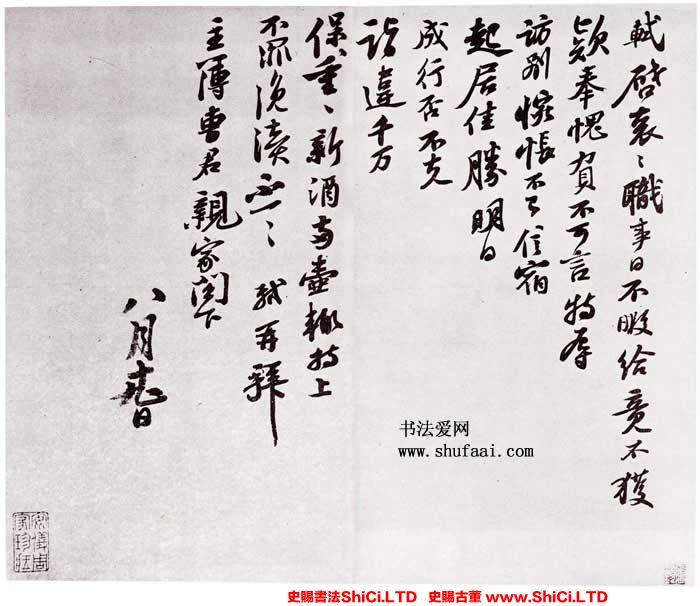 軾啓衰衰職事日不暇給竟不獲
款奉愧負不可言特辱
訪別悵悵不已信宿
起居佳勝明日
成行否不克
詣違千万
保重重新酒兩壺輒持上
不罪浼瀆不一一 軾再拜
主簿曹君親家閣下
八月
日
书法爱网
www.shufaai.com
安儀周家珍藏
史賜書法ShiCi.LTD 史賜古董 www.ShiCi.LTD